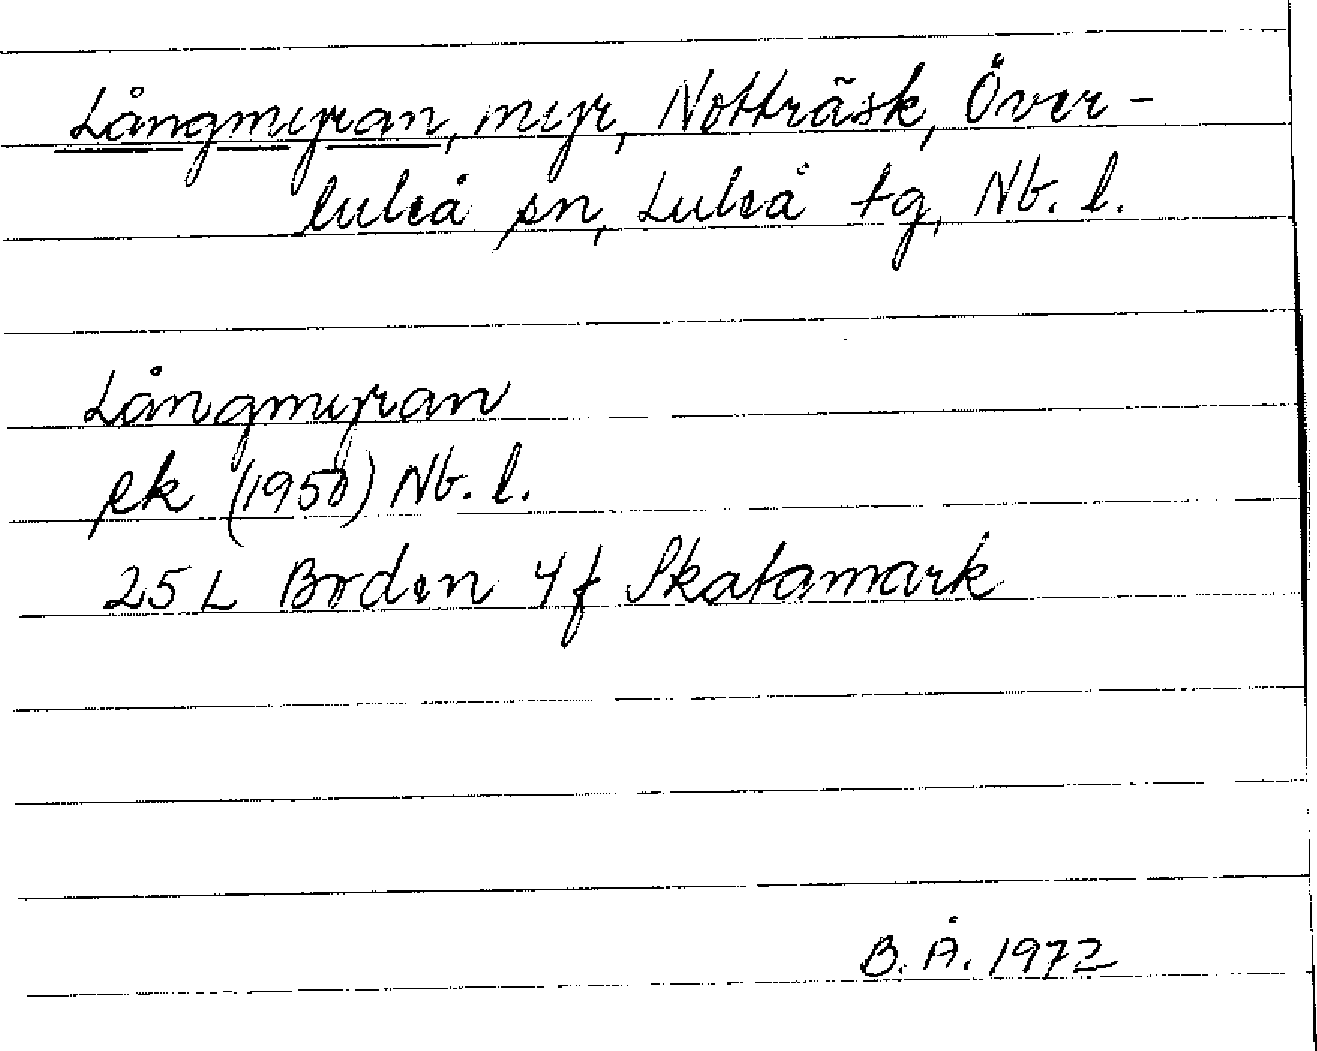 Långmyran, myr, Notträsk, Över-
luleå sn, Luleå tg, Nb. l.
Långmyran
ek (1950) Nb. l.
25 L Boden 4f Skatamark
B. Å. 1972